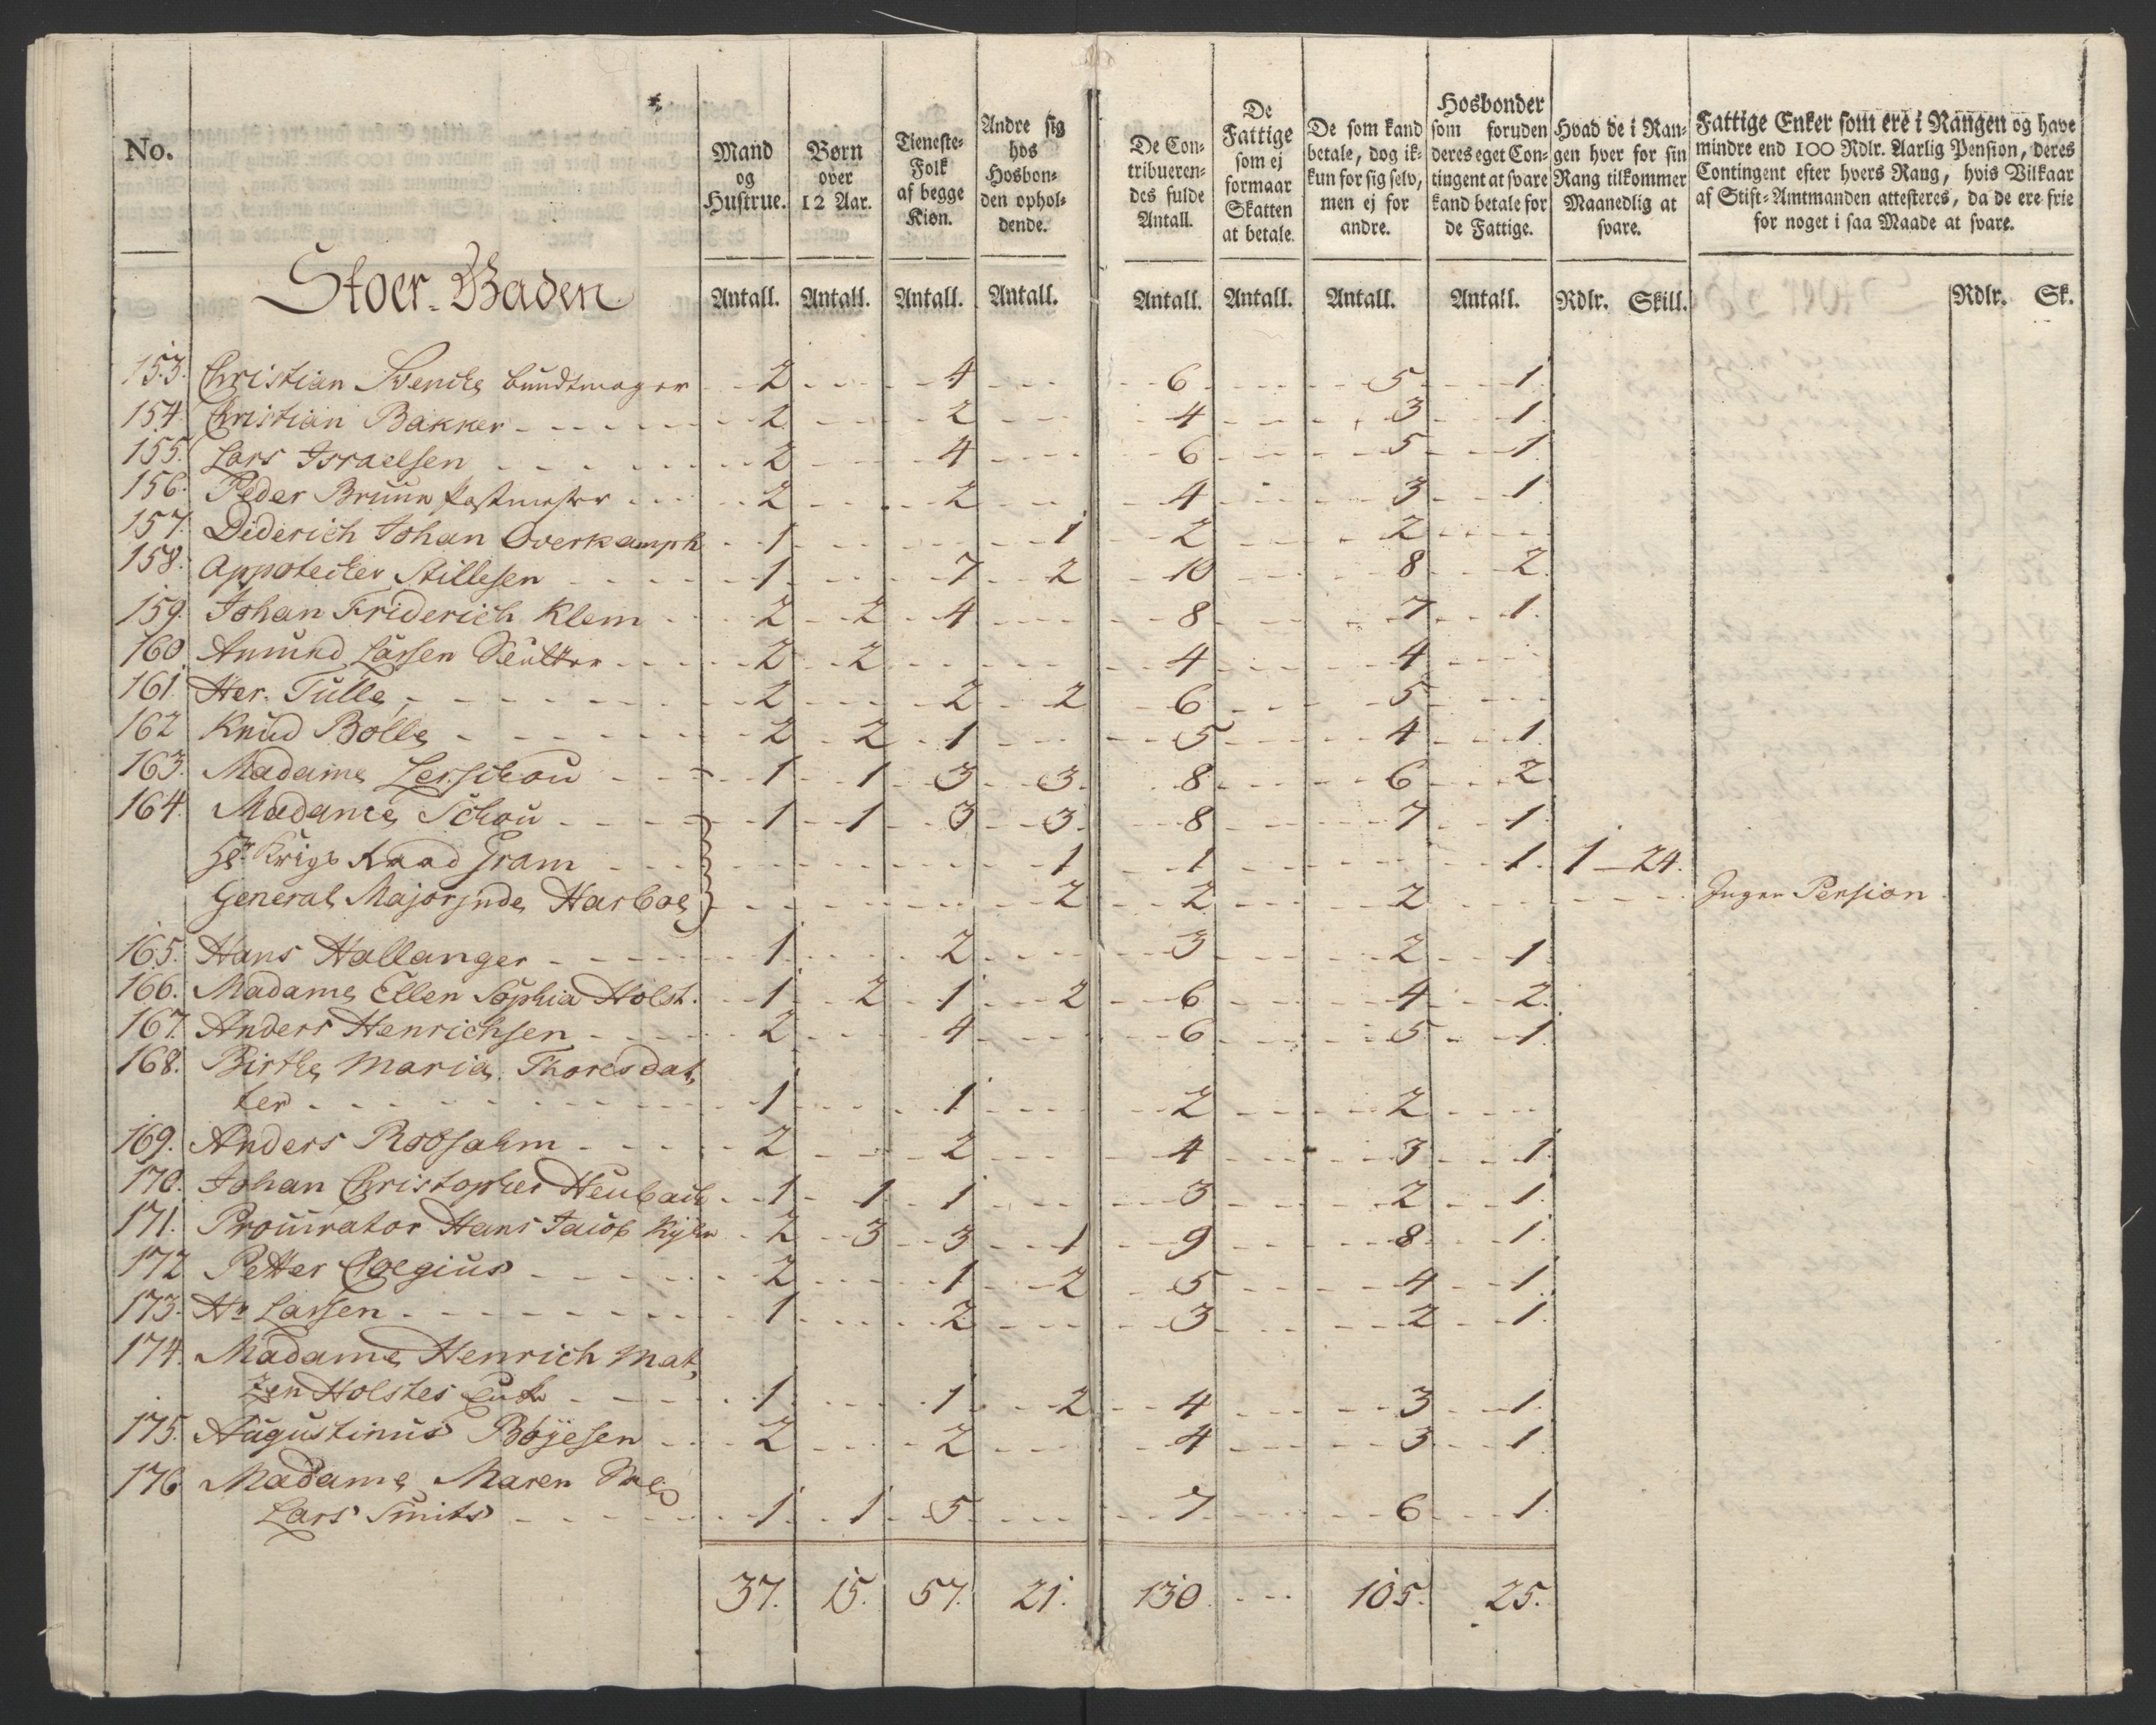 No.
Mand og Hustrue.
Børn over 12 Aar.
Tieneste-Folk af begge Kiøn.
Andre sig hos Hosbon-den ophol-dende.
De Con-tribueren-des fulde Antall.
De Fattige som ej formaar Skatten at betale.
De som kand betale, dog ik-kun for sig selv, men ej for andre.
Hosbonder som foruden deres eget Con-tingent at svare kand betale for de Fattige.
Hvad de i Ran-gen hver for sin Rang tilkommer Maanedlig at svare.
Fattige Enker som ere i Rangen og have mindre end 100 Rdlr. Aarlig Pension, deres Contingent efter hvers Rang, hvis Vilkaar af Stift-Amtmanden attesteres, da de ere frie for noget i saa Maade at svare.
Stoer-Gaden
Antall. Antall. Antall. Antall. Antall. Antall. Antall. Antall. Rdlr. Skill. Rdlr. Sk.
153. Christian Svencke bundtmager 2 4 6 5 1.
154. Christian Bakker 2 2 4 3 1.
155. Lars Israelsen 2 4 6 5 1.
156. Peder Bruun Postmester 2 2 4 3 1.
157. Diderich Johan Overkamph 1 1 2 2
158. Appotecker Stillesen 1 7 2 10 8 2.
159. Johan Friderich Klem 2 2 4 8 7 1.
160. Amund Lassen 2 2 4 4
161. Her. Tulle 2 2 2 6 5
162 Knud Bolle 2 2 1 5 4 1.
163. Madame Lerschou 1 1 3 3 8 6 2.
164. Madame Schou 1 1 3 3 8 7 1.
Hr. Krigs Raad Gram 1 1 1. 1 24.
General Majorinde Harboe 2 2 2 Ingen Pension
165. Hans Hallanger 1 2 3 2 1.
166. Madame Ellen Sophia Holst. 1 2 1 2 6 4 2.
167. Anders Henrichsen 2 4 6 5 1.
168. Birthe Maria Thoresdat,
ter 1 1 2 2
169. Anders Robsahm 2 2 4 3 1.
170. Johan Christopher Heubach 1 1 1 3 2 1.
171. Procurator Hans Jacob 2 3 3 1 9 8 1.
172 Petter Coegius 2 1 2 5 4 1.
173. Hr Lassen 1 2 3 2 1.
174. Madame Henrich Mat,
zen Holstes 1 1 2 4 3 1.
175. Augustinus Böyesen 2 2 4 3 1.
176 Madame Maren
Lars Smits 1 1 5 7 6 1.
37. 15. 57. 21. 130. 105. 25.